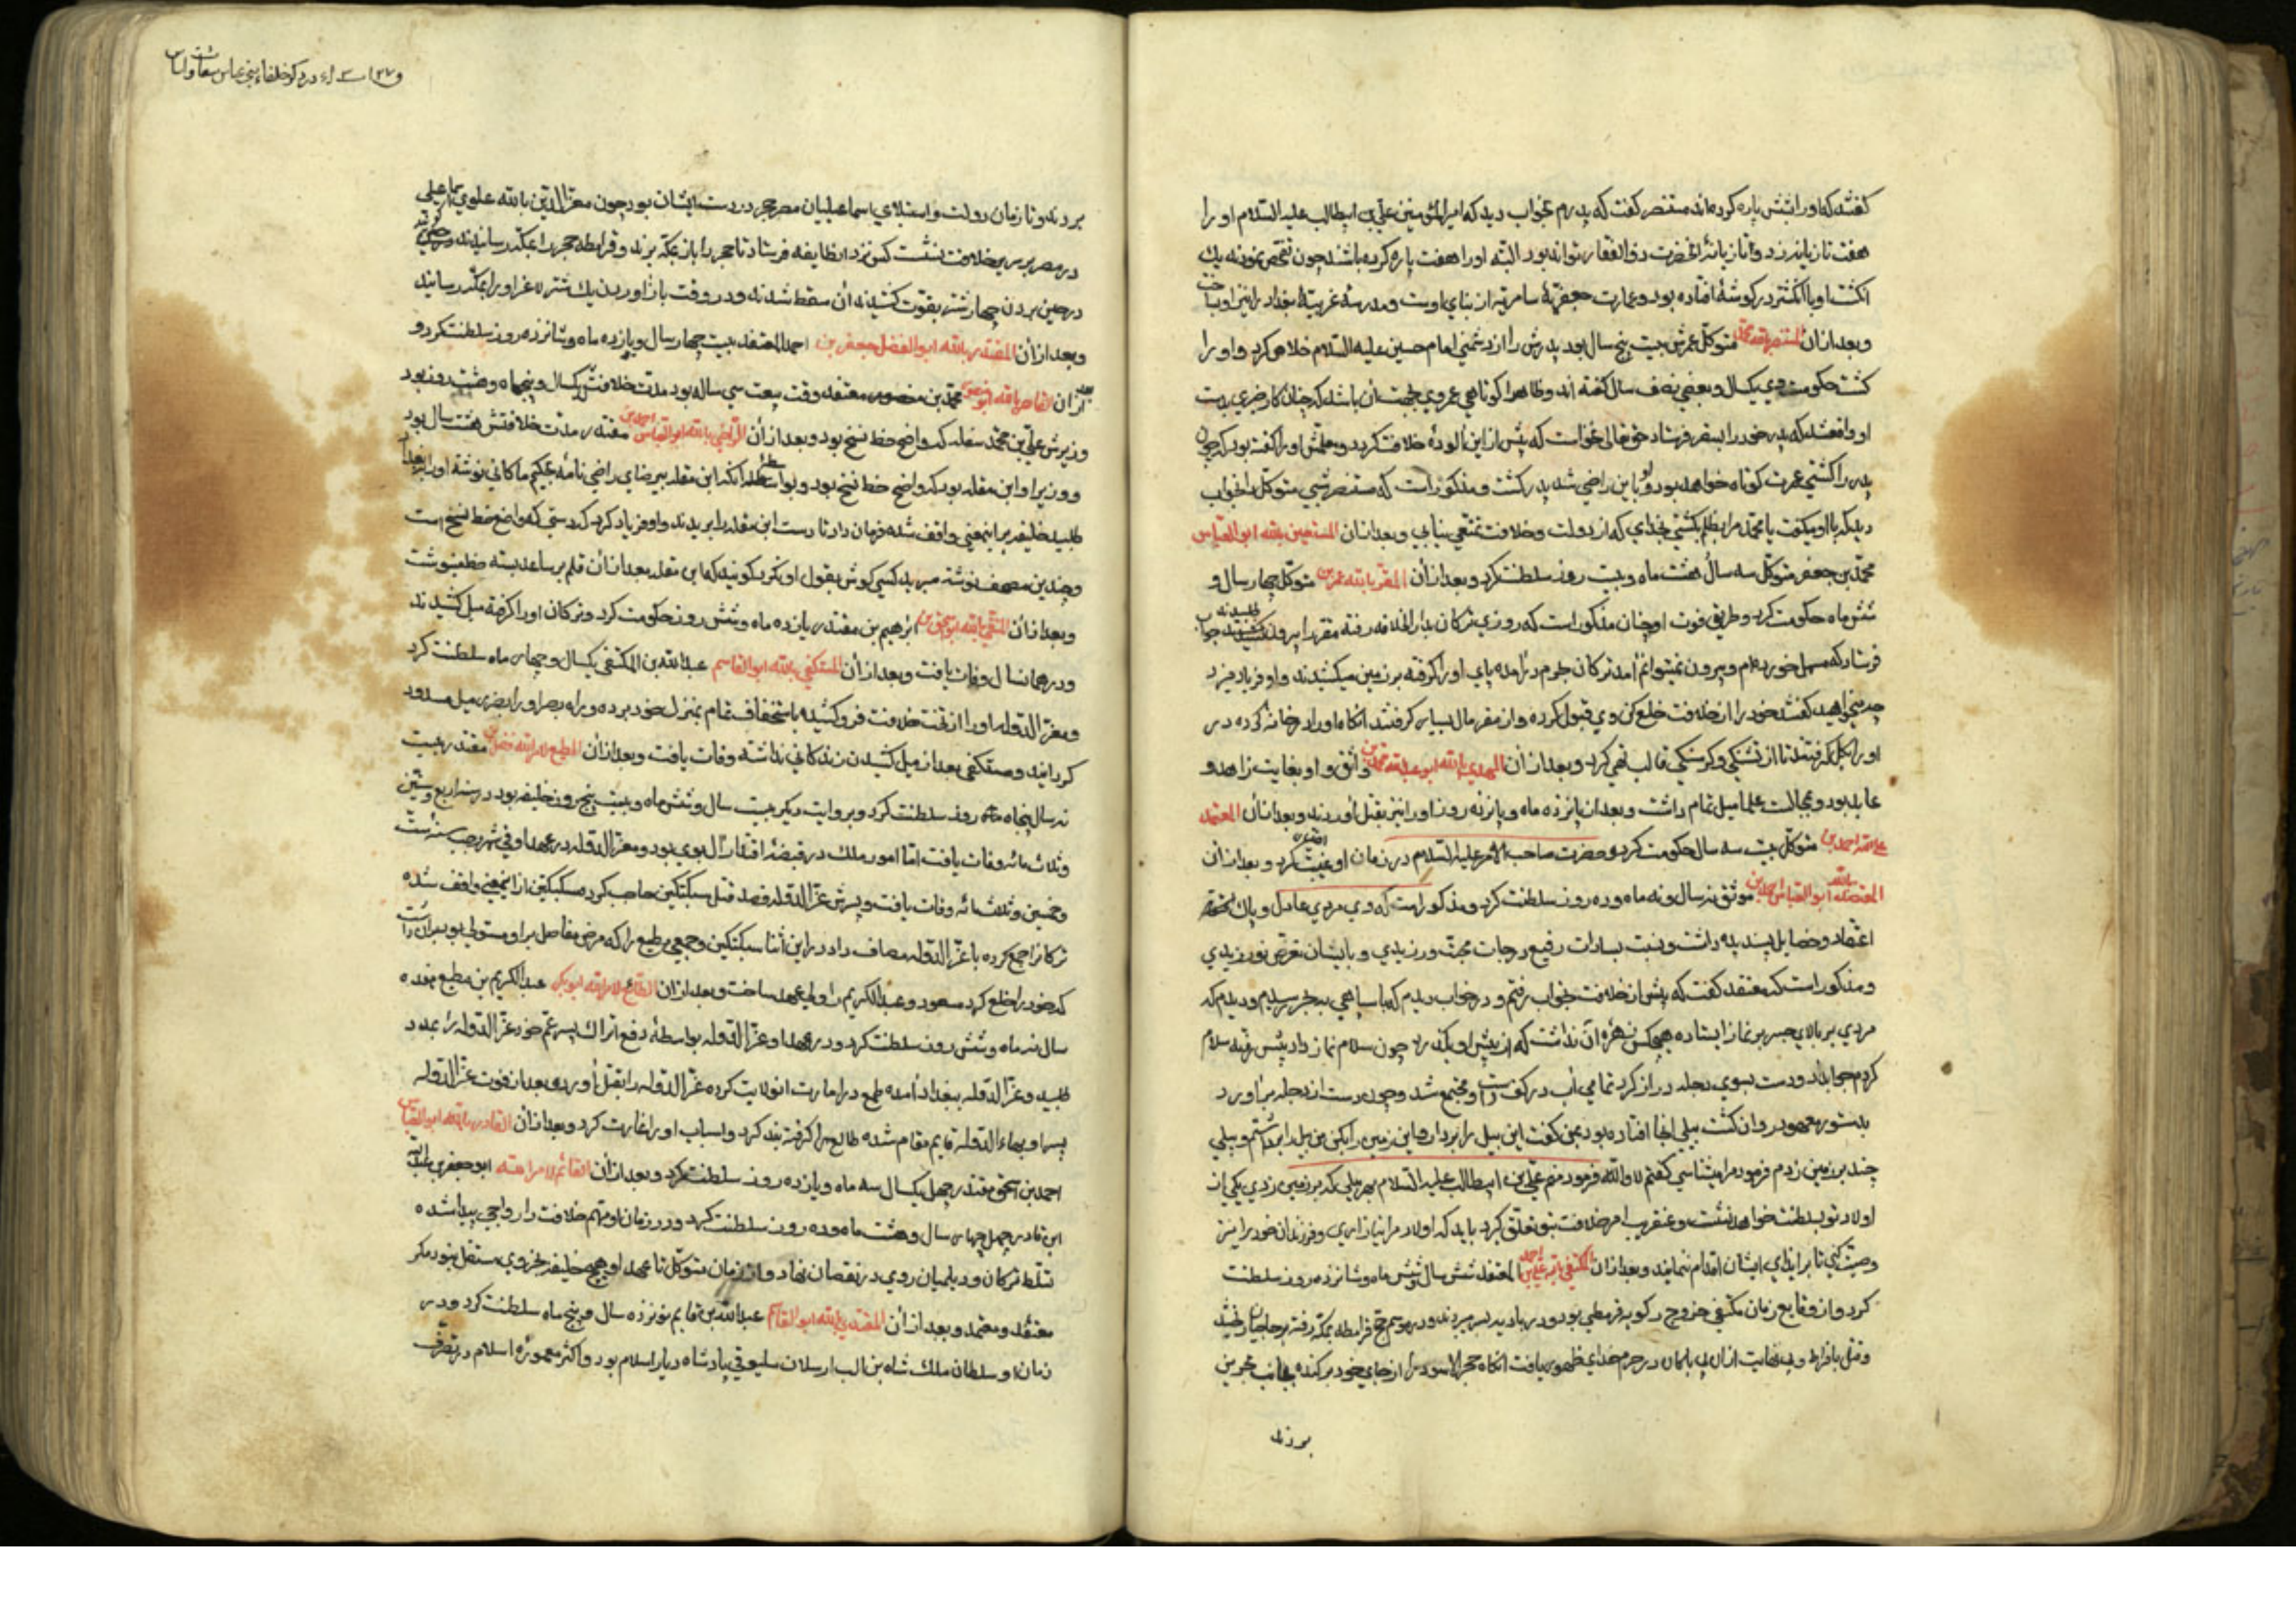 کفتند که او را بتش پاره کرده‌اند منتصر کفت که پدرم بخواب دید که امیرالمؤمنین علی بن ابیطالب علیه السلام او را
هفت تازیانه زد و تازیانهٔ انحضرت ذوالفقار تواند بود البته او را هفت پاره کرده باشند چون تفحص نمودند یک
انکشت او با انکشتر در کوشهٔ افتاده بود و عمارت جعفریهٔ سامره از بنای اوست و مدرسهٔ غربیهٔ بغداد را نیز او ساخت
و بعد از ان المنتصر بالله محمد متوکل عمرش بیست پنج سال بود پدرش را از دشمنی امام حسین علیه السلام خلاص کرد و او را
کشت حکومت وی یکسال و بعضی نصف سال کفته اند و ظاهرا کوتاهی عمر وی بجهت آن باشد که چنان کار ضروری بدست
او واقع شد که پدر خود را بسفر فرستاد حق تعالی نخواست که پس از این الودهٔ خلافت کردد و معلمش او را کفته بود که چون
پدر را کشتی عمرت کوتاه خواهد بود و او باین راضی شد پدر کشت و مذکور است که منتصر شبی متوکل را بخواب
دید که با او میکفت یا محمد مرا بظلم کشتی بخدای که از دولت و خلافت تمتعی نیابی و بعد از ان المستعین بالله ابو العباس
محمد بن جعفر متوکل سه سال هشت ماه و بیست روز سلطنت کرد و بعد از ان المعتز بالله عمر بن متوکل چهار سال و
شش ماه حکومت کرد و طریق فوت او چنان مذکور است که روزی ترکان بدار الخلافه رفته معتز را بیرون طلبیدند جواب
فرستاد که مسهل خورده‌ام و بیرون نمیتوانم آمد ترکان بحرم درآمده پای او را کرفته بر زمین میکشیدند و او فریاد میزد
چه میخواهید کفتند خود را از خلافت خلع کن وی قبول کرده و از معتز مال بسیار کرفتند انکاه او را در خانهٔ کرده در
او را بکل کرفتند تا از تشنکی و کرسنکی قالب تهی کرد و بعد از ان المهتدی بالله ابو عبدالله محمد بن واثق و او بغایت زاهد و
عابد بود و بمجالست علما میل تمام داشت و بعد از یازده ماه و پانزده روز او را نیز بقتل آوردند و بعد از ان المعتمد
علی الله احمد بن متوکل بیست سه سال حکومت کرد و حضرت صاحب الامر علیه السلام در زمان او غیبت کرد و بعد از ان
المعتضد بالله ابو العباس احمد بن موثق نه سال و نه ماه و ده روز سلطنت کرد و مذکور است که وی مردی عادل و پاک
اعتقاد و خصایل پسندیده داشت و نسبت بسادات رفیع درجات محبت ورزیدی و بایشان تعرض نورزیدی
و مذکور است که معتضد کفت که پیش از خلافت بخواب رفتم و در خواب دیدم که با سپاهی بجسر رسیدم و دیدم که
مردی بر بالای جسر بر نماز ایستاده هیچکس زهرهٔ آن نداشت که از پیش او بکذرد چون سلام نماز داد پیش رفته سلام
کردم جواب داد و دست بسوی دجله دراز کرد تمامی آب در کف دست او مجتمع شد و چون دست از دجله برآورد
بدستور معهود روان کشت بیلی انجا افتاده بود بمن کفت این بیل را بردار و این زمین را بکن من بیل را برداشتم و بیلی
چند بر زمین زدم فرمود مرا میشناسی کفتم لا والله فرمود منم علی بن ابیطالب علیه السلام بهر بیلی که بر زمین زدی یکی از
اولاد تو بسلطنت خواهد نشست و عنقریب امر خلافت بتو تعلق کیرد باید که اولاد مرا نیازاری و فرزندان خود را نیز
وصیت کنی تا بر ایذای ایشان اقدام ننمایند و بعد از ان المکتفی بالله علی بن احمد المعتضد شش سال شش ماه و شانزده روز سلطنت
کرد و از وقایع زمان مکتفی خروج زکویه قرمطی بود و در بادیه بسر میبردند و در موسم حج قرامطه بمکه رفته بر حاجیان ریختند
و قتل بافراط و بی نهایت از ان بی ایمان در حرم خدای ظهور یافت انکاه حجر الاسود را از جای خود برکنده بجانب بحرین
بردند
و ۱۲۷ در ذکر خلفاء بنی عباس
بردند و تا زمان دولت و استیلای اسماعیلیان مصر حجر در دست ایشان بود چون معز الدین بالله علوی اسماعیلی
در مصر بر سریر خلافت نشست کس نزد انطایفه فرستاد تا حجر را باز بمکه برند و قرامطه حجر را بمکه رسانیدند
در حین بردن چهار شتر بقوت کشیدند آن سقط شدند و در وقت باز اوردن یک شتر لاغر او را بمکه رسانید
و بعد از ان المقتدر بالله ابو الفضل جعفر بن احمد المعتضد بیست چهار سال و یازده ماه و شانزده روز سلطنت کرد و
بعد از ان القاهر بالله ابو منصور محمد بن معتضد وقت بیعت سی ساله بود مدت خلافتش یکسال و پنجماه و هشت روز بود
وزیرش علی بن محمد مقله که واضع خط نسخ بود و بعد از ان الراضی بالله ابو العباس احمد بن مقتدر مدت خلافتش هفت سال بود
و وزیر او ابن مقله بود که واضع خط نسخ بود و بواسطه آنکه ابن مقله بیرضای راضی نامهٔ بحکیم ماکانی نوشته او را ببغداد
طلبید خلیفه بر اینمعنی واقف شده فرمان داد تا دست ابن مقله را بریدند و او فریاد کرد که دستی که واضع خط نسخ است
و چندین مصحف نوشته میبرید کسی کوش بقول او نکرد کویند که ابن مقله بعد از ان قلم بر ساعد بسته خط مینوشت
و بعد از ان المتقی بالله ابو اسحق بن ابرهیم بن مقتدر یازده ماه و شش روز حکومت کرد و ترکان او را کرفته میل کشیدند
و در همان سال وفات یافت و بعد از ان المستکفی بالله ابو القاسم عبدالله بن المکتفی یکسال و چهار ماه سلطنت کرد
و معز الدوله او را از تخت خلافت فرو کشیده باستخفاف تمام بمنزل خود برده و راه بصر او را بضرب میل مسدود
کردانید و مستکفی بعد از میل کشیدن زندکانی نداشته وفات یافت و بعد از ان المطیع لامرالله فضل بن مقتدر بیست
نه سال پنجاه روز سلطنت کرد و بروایت دیکر بیست سال و شش ماه و بیست پنج روز خلیفه بود در سنه اربع و ستین
و ثلاث مائه وفات یافت اما امور ملک در قبضهٔ اقتدار آل بویه بود و معز الدوله در عهد او فی شهر رجب سنه ست
و خمسین و ثلثمائه وفات یافت و پسرش عز الدوله قصد قتل سبکتکین حاجب کرد سبکتکین از اینمعنی واقف شده
ترکانرا جمع کرده با عز الدوله مصاف داد در این اثنا سبکتکین و جمعی مطیع را که مرض مفاصل بر او مستولی بود بران داشت
که خود را خلع کرد و عبدالکریم را ولیعهد ساخت و بعد از ان الطایع لامرالله ابوبکر عبدالکریم بن مطیع هفده
سال نه ماه و شش روز سلطنت کرد و در عهد او عز الدوله بواسطهٔ دفع اتراک پسر عم خود عز الدوله را بمدد
طلبید و عز الدوله ببغداد آمده طمع در امارت انولایت کرده عز الدوله را بقتل آورد و بعد از فوت عز الدوله
پسر او بهاء الدوله قایم مقام شده طایع را کرفته بند کرد و اسباب او را غارت کرد و بعد از ان القادر بالله ابو العباس
احمد بن اسحق مقتدر چهل یکسال سه ماه و یازده روز سلطنت کرد و بعد از ان القائم لامرالله ابو جعفر بن عبدالله
ابن قادر چهل چهار سال و هشت ماه و ده روز سلطنت کرد و در زمان او مهم خلافت را رواجی پیدا شده
تسلط ترکان و دیلمیان روی در نقصان نهاد و از زمان متوکل تا عهد او هیچ خلیفه بجز وی مستقل نبود مکر
معتضد و معتمد و بعد از ان المقتدی بالله ابو القاسم عبدالله بن قایم نوزده سال و پنج ماه سلطنت کرد و در
زمان او سلطان ملک شاه بن الب ارسلان سلجوقی پادشاه دیار اسلام بود و اکثر معمورهٔ اسلام در تصرف